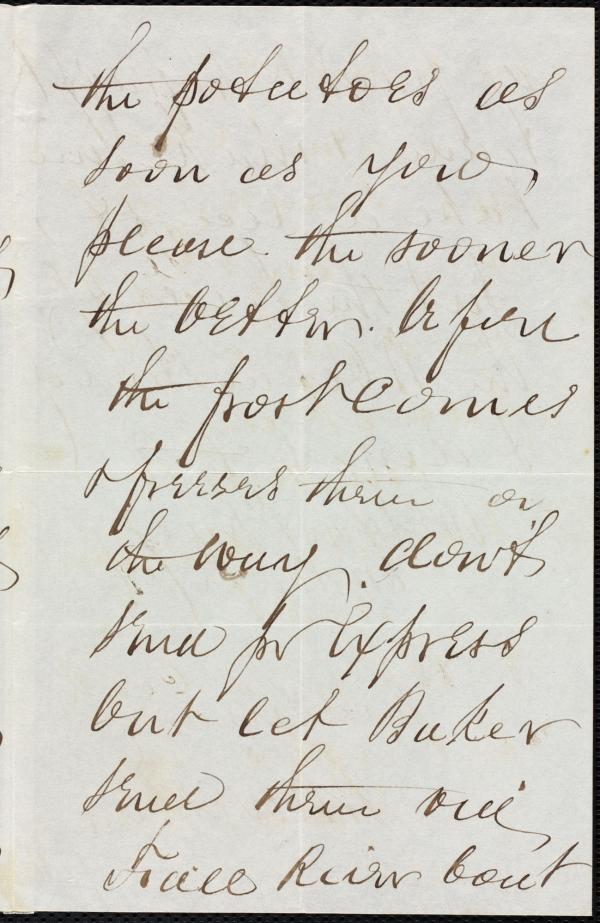 the potatoes as
soon as you
please. the sooner
the better. before
the frost comes
& freezes them on
the way. don't
send pr Express
but let Baker
send them via
Fall River boat